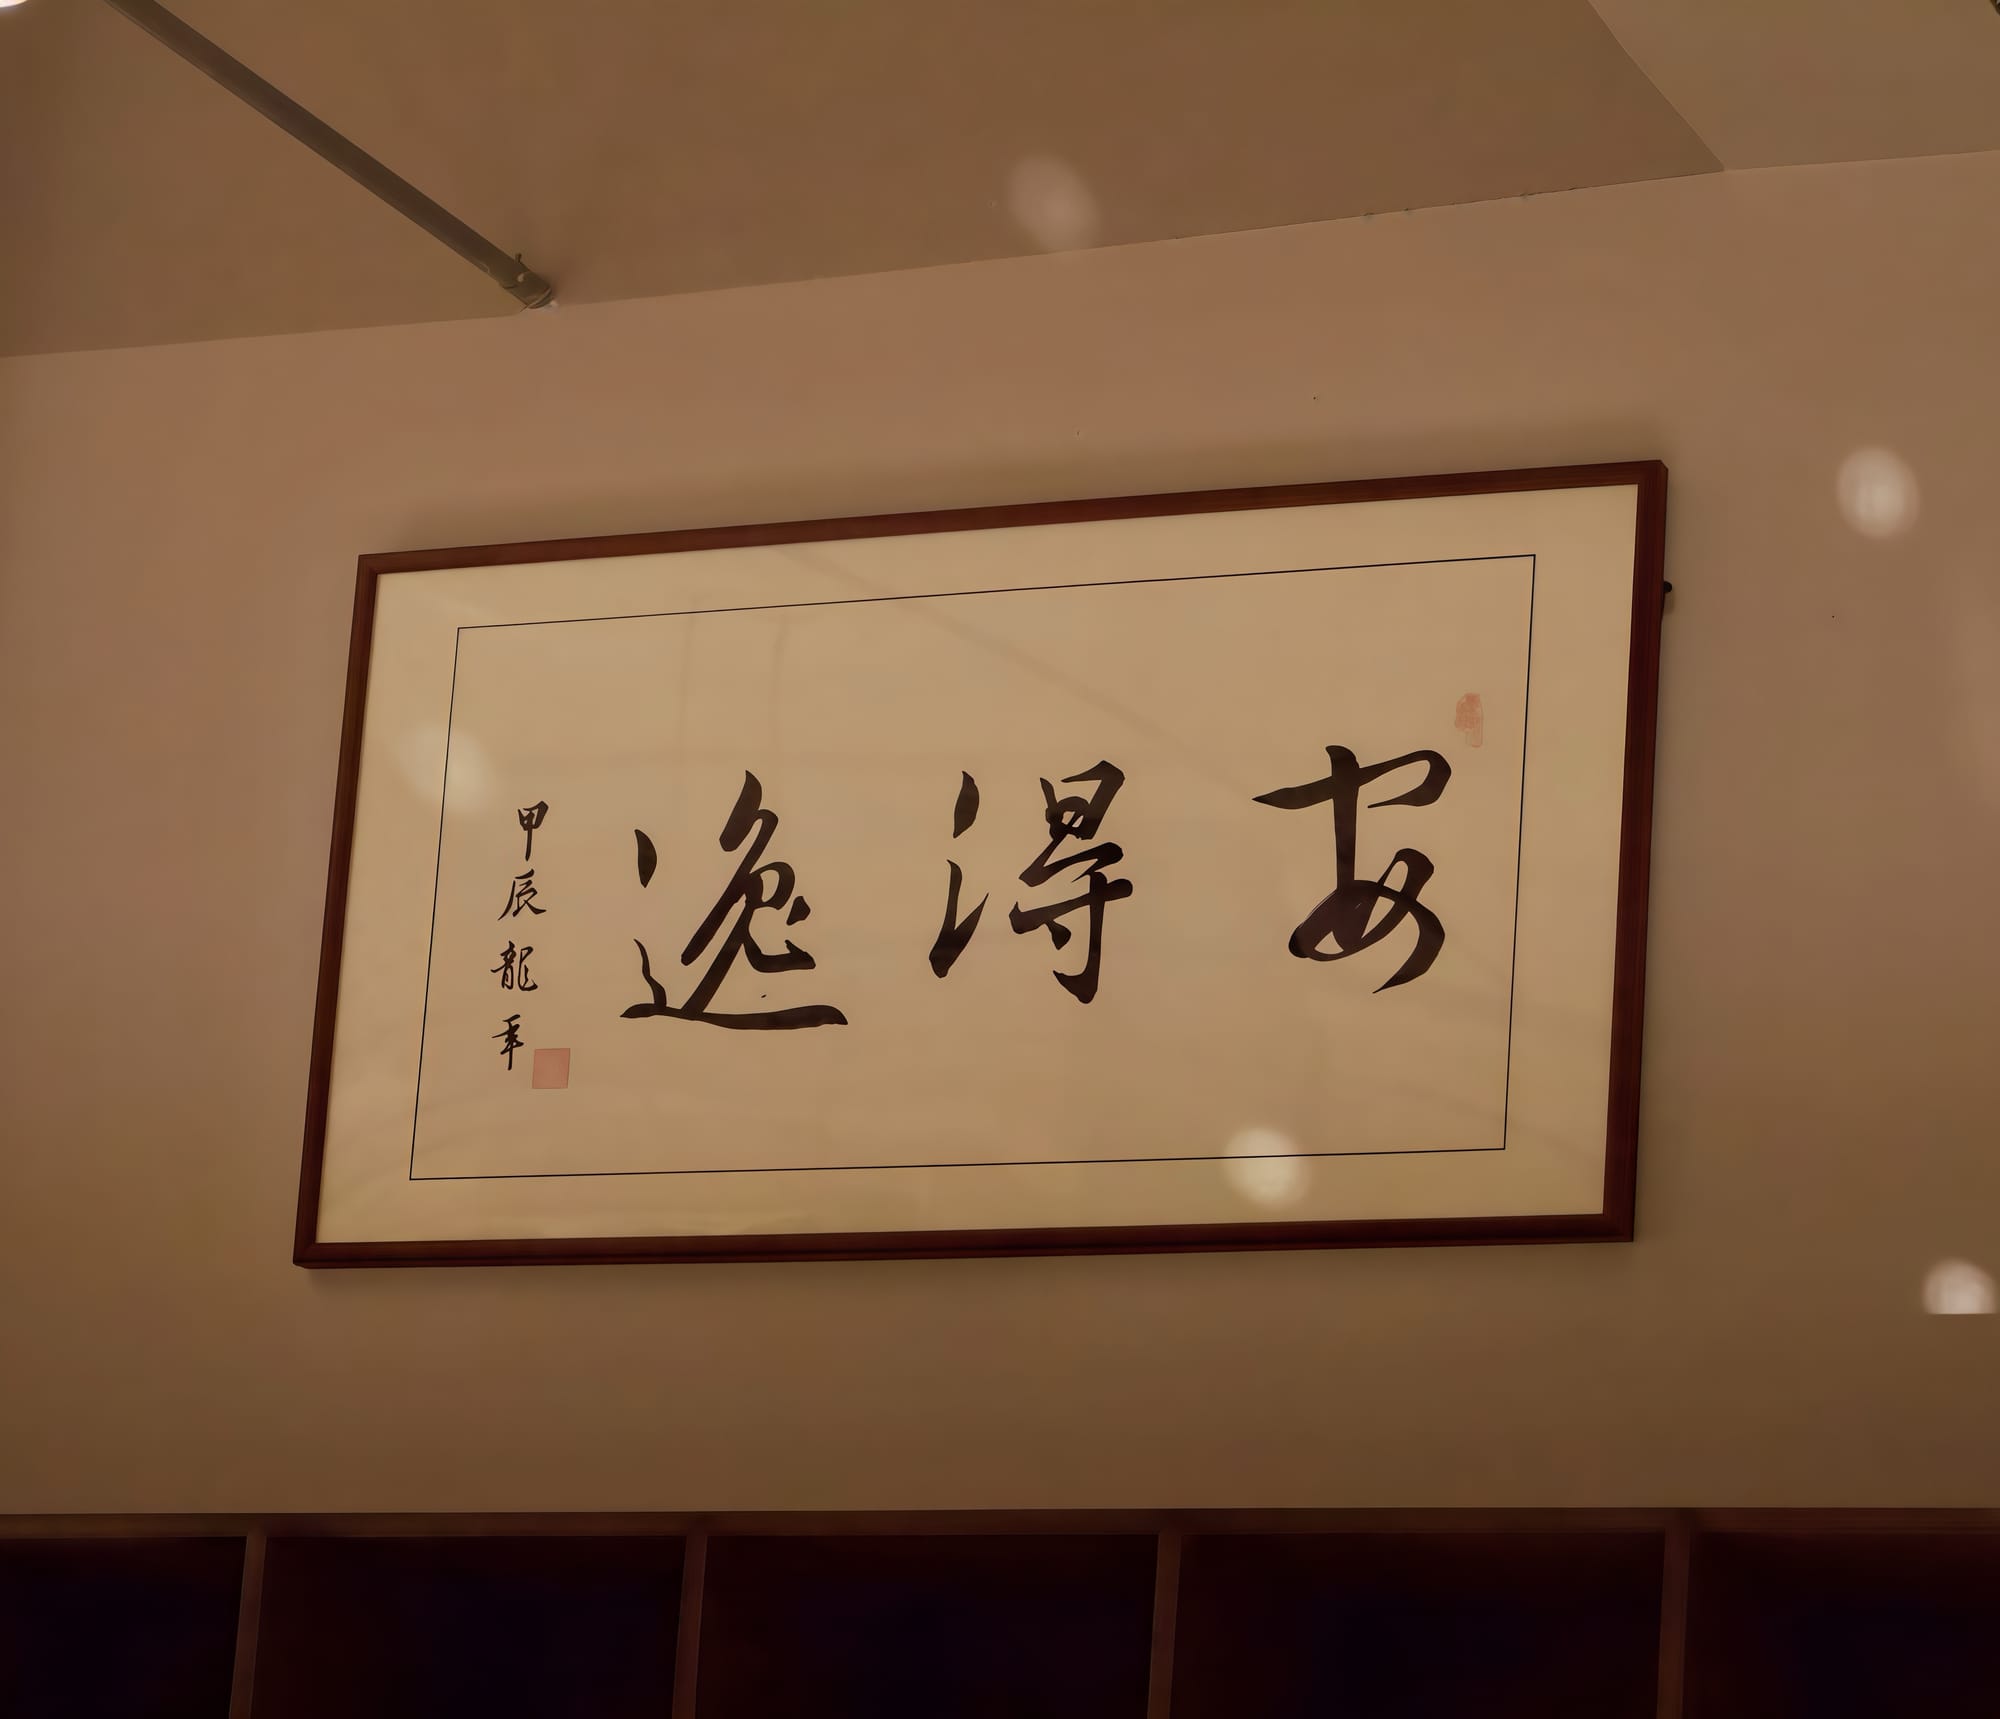 安得逸
甲辰龍年